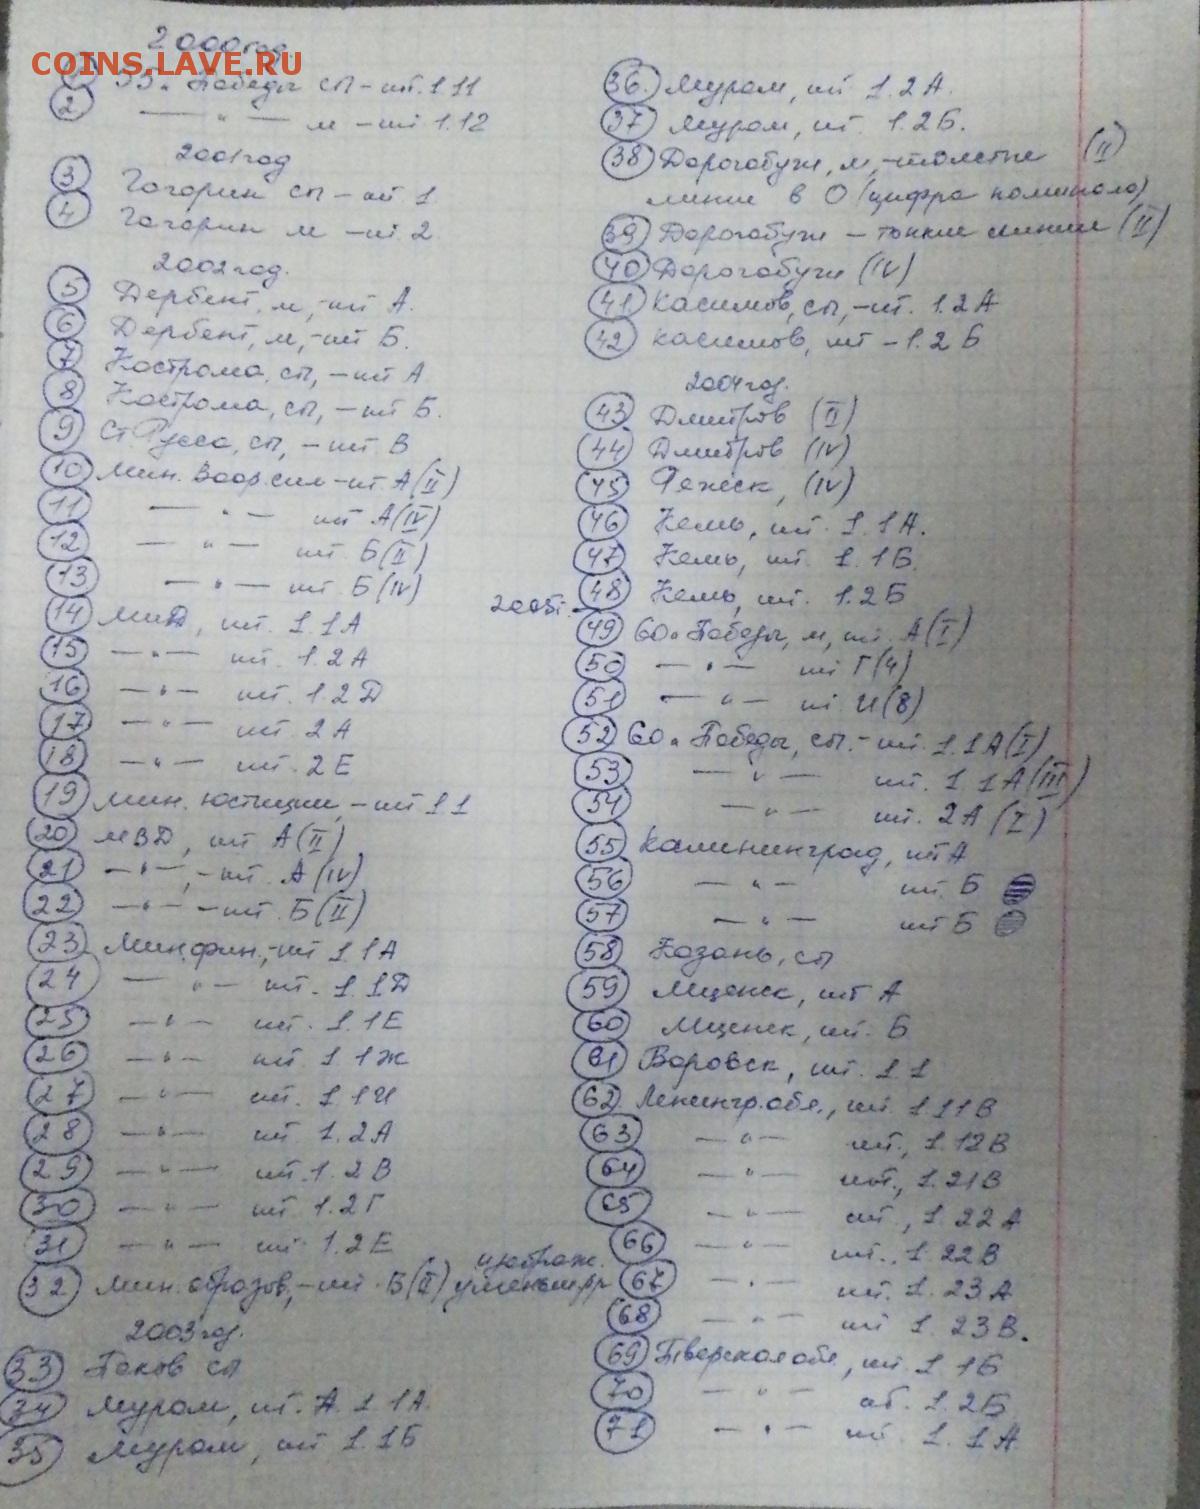 2000 год.
COINS.LAVE.RU
1 55 л Победы сп - шт. 1.11
2 — " — м - шт 1.12
2001 год
3 Гагарин сп - шт 1
4 Гагарин м - шт 2
2002 год.
5 Дербент, м, - шт А.
6 Дербент, м, - шт Б.
7 Кострома, сп, - шт А
8 Кострома, сп, - шт Б.
9 Ст. Русса, сп, - шт В
10 Мин. Воор. сил - шт. А (II)
11 — " — шт А (IV)
12 — " — шт. Б (II)
13 — " — шт Б (IV)
14 МИД, шт. 1.1А
15 — " — шт. 1.2А
16 — " — шт. 1.2Д
17 — " — шт. 2А
18 — " — шт. 2Е
19 Мин. юстиции, - шт 1.1
20 МВД, шт А (II)
21 — " —, - шт. А (IV)
22 — " — - шт. Б (II)
23 Мин. фин., - шт 1.1А
24 — " — шт. 1.1Д
25 — " — шт. 1.1Е
26 — " — шт 1.1Ж
27 — " — шт. 1.1И
28 — " — шт 1.2А
29 — " — шт. 1.2В
30 — " — шт 1.2Г
31 — " — шт 1.2Е
32 Мин. образов, - шт. Б (II) изображ. уменьш
2003 год.
33 Псков сп
34 Муром, шт. А 1.1А.
35 Муром, шт 1.1Б
36 Муром, шт 1.2А.
37 Муром, шт. 1.2Б.
38 Дорогобуж, м, - толстые (II)
линии в О (цифра номинала)
39 Дорогобуж - тонкие линии (II)
40 Дорогобуж (IV)
41 Касимов, сп, - шт. 1.2А
42 Касимов, шт - 1.2Б
2004 год.
43 Дмитров (II)
44 Дмитров (IV)
45 Ряжск, (IV)
46 Кемь, шт. 1.1А.
47 Кемь, шт. 1.1Б.
48 Кемь, шт. 1.2Б
2005г. -
49 60 л Победы, м, шт. А (I)
50 — " — шт Г (4)
51 — " — шт. И (8)
52 60 л Победы, сп. - шт. 1.1А (I)
53 — " — шт. 1.1А (III)
54 — " — шт. 2А (I)
55 Калининград, шт А
56 — " — шт. Б
57 — " — шт Б
58 Казань, сп
59 Мценск, шт А
60 Мценск, шт. Б
61 Боровск, шт. 1.1
62 Ленингр. обл., шт 1.11В
63 — " — шт., 1.12В
64 — " — шт., 1.21В
65 — " — шт., 1.22А
66 — " — шт., 1.22В
67 — " — шт. 1.23А
68 — " — шт 1.23В.
69 Тверская обл, шт. 1.1Б
70 — " — шт. 1.2Б
71 — " — шт. 1.1А